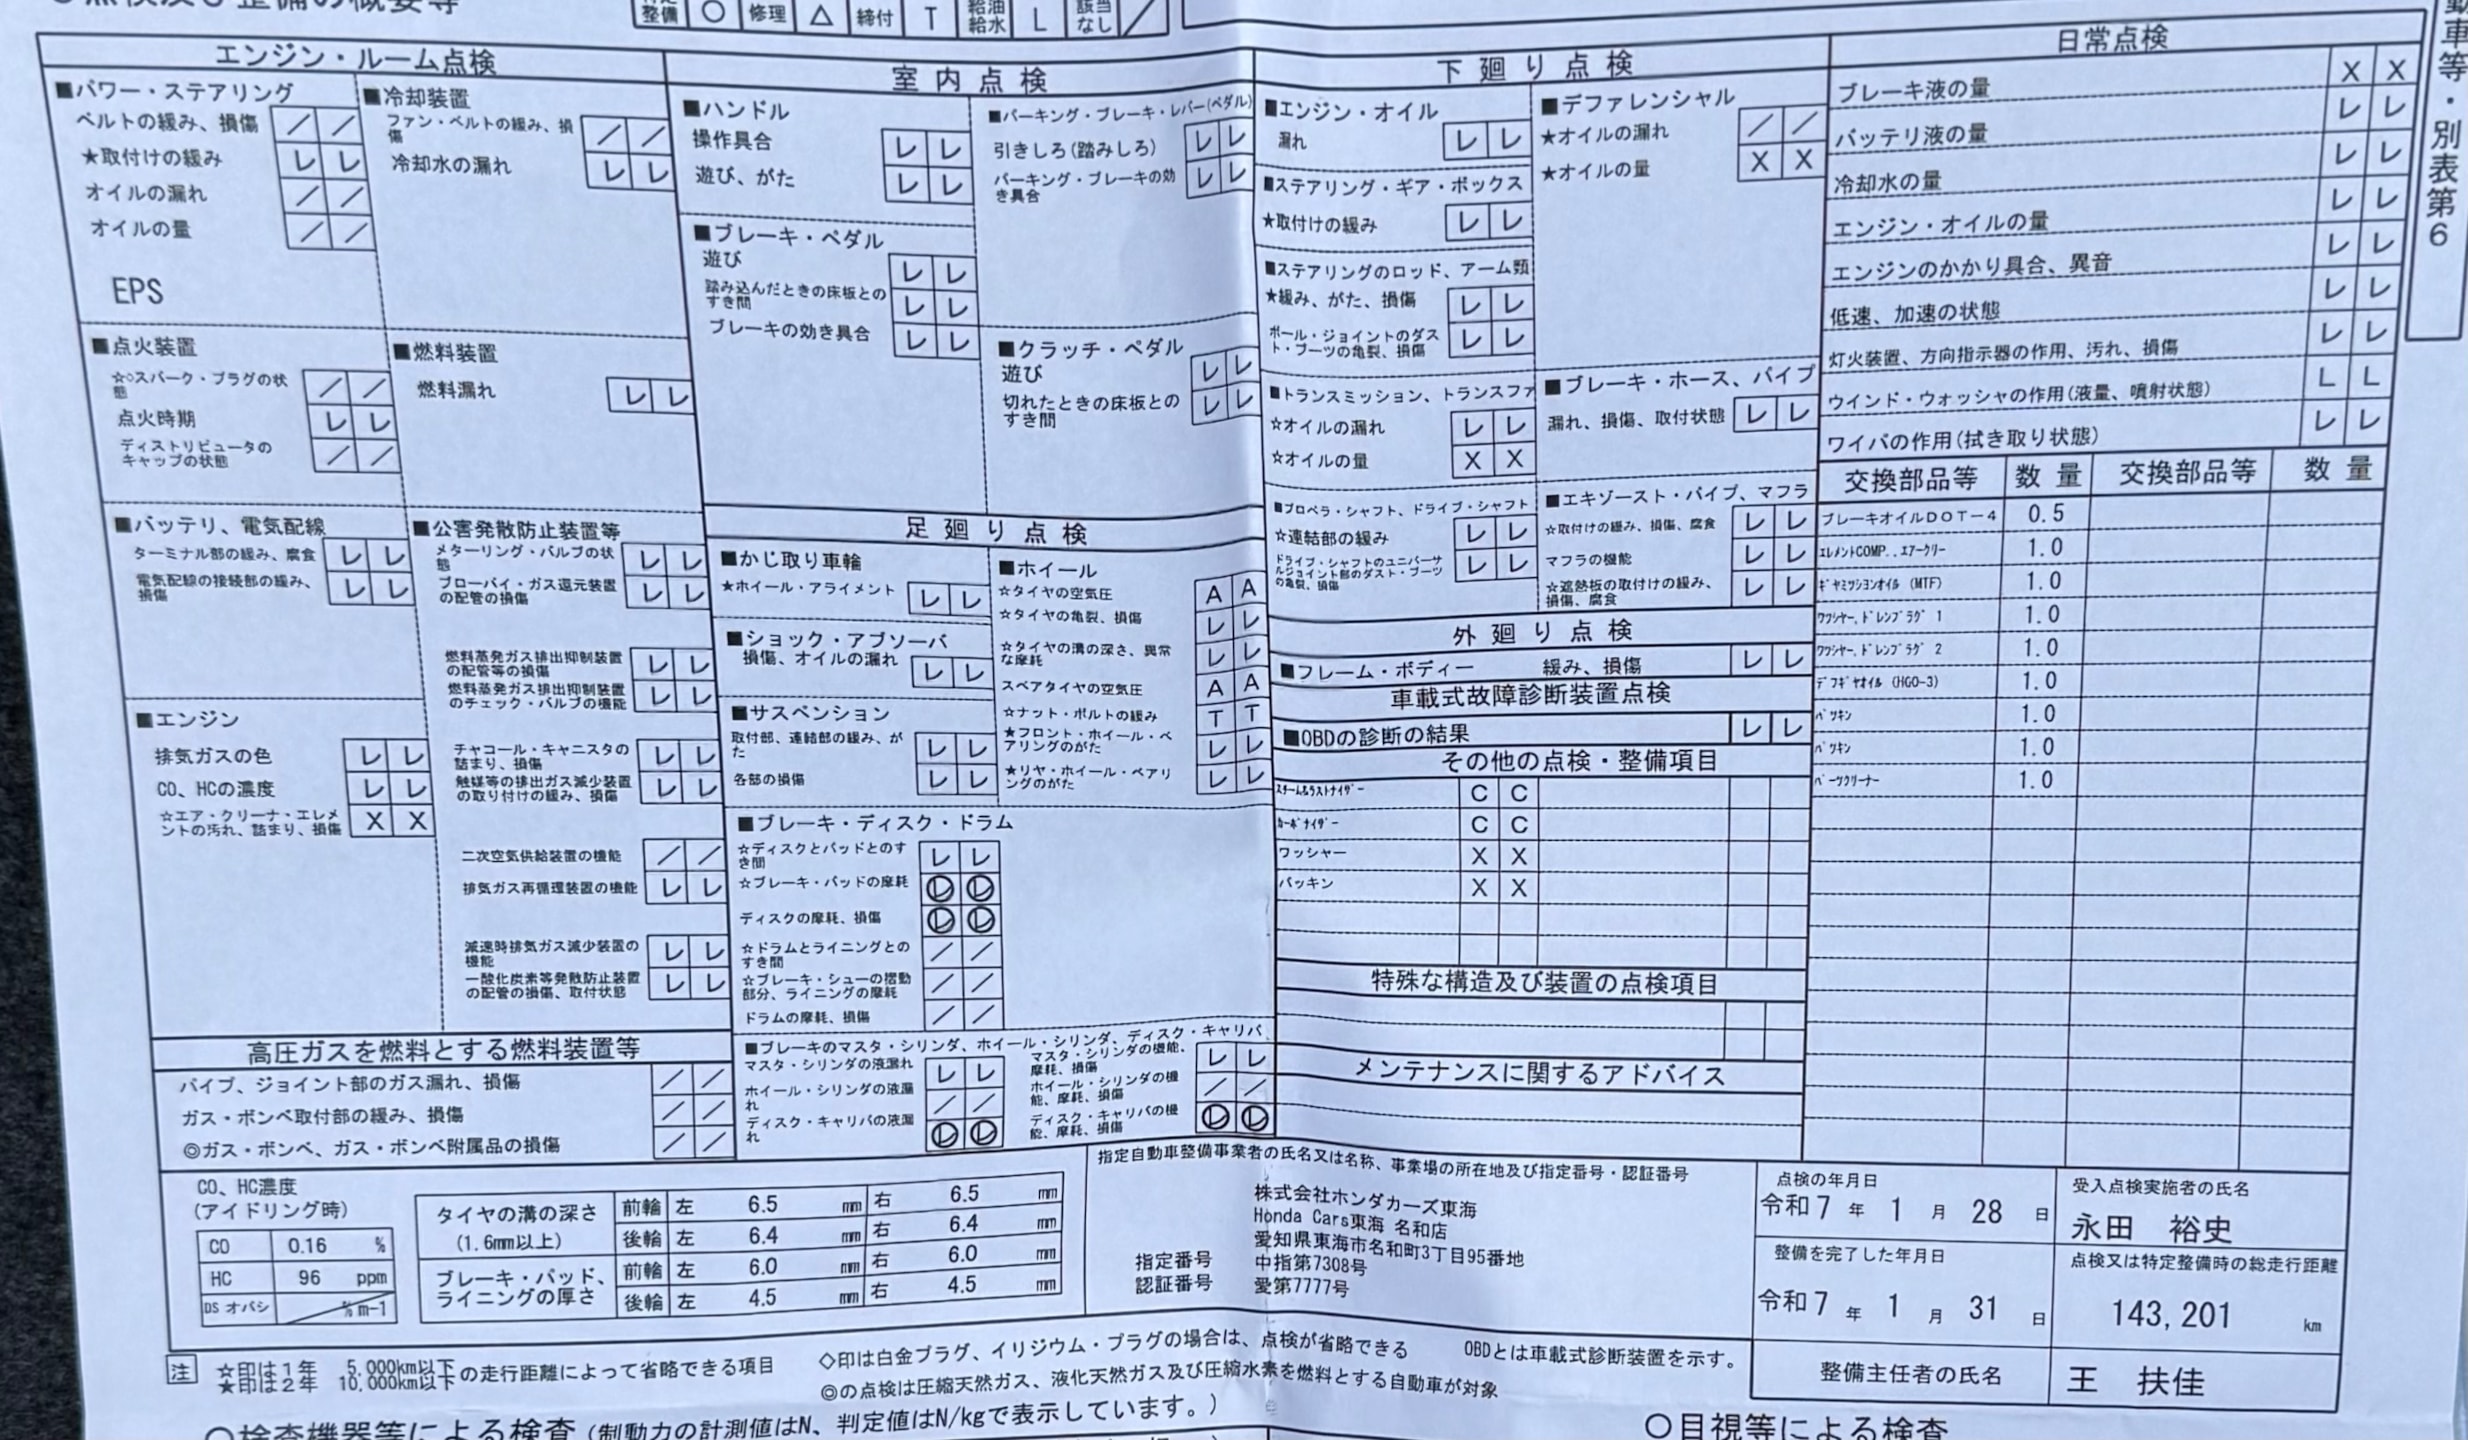 整備 ○ 修理 △ 締付 T 給油給水 L 該当なし ／
動車等・別表第6
エンジン・ルーム点検
■パワー・ステアリング
ベルトの緩み、損傷 ／ ／
★取付けの緩み レ レ
オイルの漏れ ／ ／
オイルの量 ／ ／
EPS
■冷却装置
ファン・ベルトの緩み、損傷 ／ ／
冷却水の漏れ レ レ
■点火装置
☆◇スパーク・プラグの状態 ／ ／
点火時期 レ レ
ディストリビュータのキャップの状態 ／ ／
■燃料装置
燃料漏れ レ レ
■バッテリ、電気配線
ターミナル部の緩み、腐食 レ レ
電気配線の接続部の緩み、損傷 レ レ
■エンジン
排気ガスの色 レ レ
CO、HCの濃度 レ レ
☆エア・クリーナ・エレメントの汚れ、詰まり、損傷 X X
■公害発散防止装置等
メターリング・バルブの状態 レ レ
ブローバイ・ガス還元装置の配管の損傷 レ レ
燃料蒸発ガス排出抑制装置の配管等の損傷 レ レ
燃料蒸発ガス排出抑制装置のチェック・バルブの機能 レ レ
チャコール・キャニスタの詰まり、損傷 レ レ
触媒等の排出ガス減少装置の取り付けの緩み、損傷 レ レ
二次空気供給装置の機能 ／ ／
排気ガス再循環装置の機能 レ レ
減速時排気ガス減少装置の機能 レ レ
一酸化炭素等発散防止装置の配管の損傷、取付状態 レ レ
高圧ガスを燃料とする燃料装置等
パイプ、ジョイント部のガス漏れ、損傷 ／ ／
ガス・ボンベ取付部の緩み、損傷 ／ ／
◎ガス・ボンベ、ガス・ボンベ附属品の損傷 ／ ／
室内点検
■ハンドル
操作具合 レ レ
遊び、がた レ レ
■ブレーキ・ペダル
遊び レ レ
踏み込んだときの床板とのすき間 レ レ
ブレーキの効き具合 レ レ
■パーキング・ブレーキ・レバー(ペダル)
引きしろ(踏みしろ) レ レ
パーキング・ブレーキの効き具合 レ レ
■クラッチ・ペダル
遊び レ レ
切れたときの床板とのすき間 レ レ
足廻り点検
■かじ取り車輪
★ホイール・アライメント レ レ
■ショック・アブソーバ
損傷、オイルの漏れ レ レ
■サスペンション
取付部、連結部の緩み、がた レ レ
各部の損傷 レ レ
■ホイール
☆タイヤの空気圧 A A
☆タイヤの亀裂、損傷 レ レ
☆タイヤの溝の深さ、異常な摩耗 レ レ
スペアタイヤの空気圧 A A
☆ナット・ボルトの緩み T T
★フロント・ホイール・ベアリングのがた レ レ
★リヤ・ホイール・ベアリングのがた レ レ
■ブレーキ・ディスク・ドラム
☆ディスクとパッドとのすき間 レ レ
☆ブレーキ・パッドの摩耗 Ⓛ Ⓛ
ディスクの摩耗、損傷 Ⓛ Ⓛ
☆ドラムとライニングとのすき間 ／ ／
☆ブレーキ・シューの摺動部分、ライニングの摩耗 ／ ／
ドラムの摩耗、損傷 ／ ／
■ブレーキのマスタ・シリンダ、ホイール・シリンダ、ディスク・キャリパ
マスタ・シリンダの液漏れ レ レ
ホイール・シリンダの液漏れ ／ ／
ディスク・キャリパの液漏れ Ⓛ Ⓛ
マスタ・シリンダの機能、摩耗、損傷 レ レ
ホイール・シリンダの機能、摩耗、損傷 ／ ／
ディスク・キャリパの機能、摩耗、損傷 Ⓛ Ⓛ
下廻り点検
■エンジン・オイル
漏れ レ レ
■ステアリング・ギア・ボックス
★取付けの緩み レ レ
■ステアリングのロッド、アーム類
★緩み、がた、損傷 レ レ
ボール・ジョイントのダスト・ブーツの亀裂、損傷 レ レ
■トランスミッション、トランスファ
☆オイルの漏れ レ レ
☆オイルの量 X X
■プロペラ・シャフト、ドライブ・シャフト
☆連結部の緩み レ レ
ドライブ・シャフトのユニバーサルジョイント部のダスト・ブーツの亀裂、損傷 レ レ
■デファレンシャル
★オイルの漏れ ／ ／
★オイルの量 X X
■ブレーキ・ホース、パイプ
漏れ、損傷、取付状態 レ レ
■エキゾースト・パイプ、マフラ
☆取付けの緩み、損傷、腐食 レ レ
マフラの機能 レ レ
☆遮熱板の取付けの緩み、損傷、腐食 レ レ
外廻り点検
■フレーム・ボディー 緩み、損傷 レ レ
車載式故障診断装置点検
■OBDの診断の結果 レ レ
その他の点検・整備項目
ｽﾁｰﾑ&ﾗｽﾄﾅｲｻﾞｰ C C
ｶｰﾎﾞﾅｲｻﾞｰ C C
ワッシャー X X
パッキン X X
特殊な構造及び装置の点検項目
メンテナンスに関するアドバイス
日常点検
ブレーキ液の量 X X
バッテリ液の量 レ レ
冷却水の量 レ レ
エンジン・オイルの量 レ レ
エンジンのかかり具合、異音 レ レ
低速、加速の状態 レ レ
灯火装置、方向指示器の作用、汚れ、損傷 レ レ
ウインド・ウォッシャの作用(液量、噴射状態) L L
ワイパの作用(拭き取り状態) レ レ
交換部品等 数量 交換部品等 数量
ブレーキオイルDOT-4 0.5
ｴﾚﾒﾝﾄCOMP.,ｴｱｰｸﾘｰ 1.0
ｷﾞﾔﾐｯｼｮﾝｵｲﾙ (MTF) 1.0
ﾜﾂｼﾔｰ,ﾄﾞﾚﾝﾌﾟﾗｸﾞ 1 1.0
ﾜﾂｼﾔｰ,ﾄﾞﾚﾝﾌﾟﾗｸﾞ 2 1.0
ﾃﾞﾌｷﾞﾔｵｲﾙ (HGO-3) 1.0
ﾊﾟﾂｷﾝ 1.0
ﾊﾟﾂｷﾝ 1.0
ﾊﾟｰﾂｸﾘｰﾅｰ 1.0
CO、HC濃度
(アイドリング時)
CO 0.16 %
HC 96 ppm
DS オパシ % m-1
タイヤの溝の深さ (1.6mm以上)
前輪 左 6.5 mm 右 6.5 mm
後輪 左 6.4 mm 右 6.4 mm
ブレーキ・パッド、ライニングの厚さ
前輪 左 6.0 mm 右 6.0 mm
後輪 左 4.5 mm 右 4.5 mm
指定自動車整備事業者の氏名又は名称、事業場の所在地及び指定番号・認証番号
株式会社ホンダカーズ東海
Honda Cars東海 名和店
愛知県東海市名和町3丁目95番地
指定番号 中指第7308号
認証番号 愛第7777号
点検の年月日
令和 7 年 1 月 28 日
整備を完了した年月日
令和 7 年 1 月 31 日
受入点検実施者の氏名
永田 裕史
点検又は特定整備時の総走行距離
143,201 km
整備主任者の氏名 王 扶佳
注 ☆印は1年 5,000km以下
★印は2年 10,000km以下 の走行距離によって省略できる項目
◇印は白金プラグ、イリジウム・プラグの場合は、点検が省略できる OBDとは車載式診断装置を示す。
◎の点検は圧縮天然ガス、液化天然ガス及び圧縮水素を燃料とする自動車が対象
○検査機器等による検査 (制動力の計測値はN、判定値はN/kgで表示しています。)
○目視等による検査